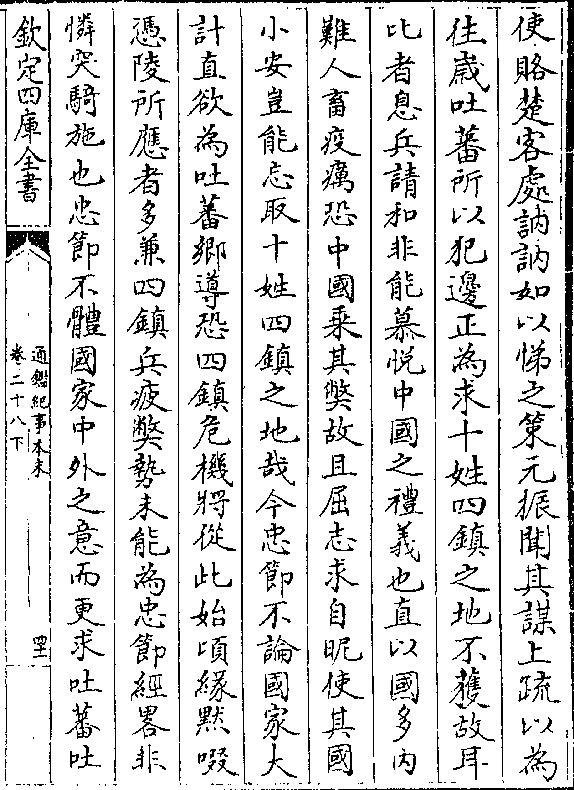 使賂楚客處訥訥如以悌之策元振聞其謀上疏以為
往歲吐蕃所以犯邊正為求十姓四鎮之地不獲故耳
比者息兵請和非能慕悅中國之禮義也直以國多内
難人畜疫癘恐中國乘其獘故且屈志求自昵使其國
小安豈能忘取十姓四鎮之地哉今忠節不論國家大
計直欲為吐蕃鄉導恐四鎮危機將從此始頃緣黙啜
憑陵所應者多兼四鎮兵疲獘勢未能為忠節經畧非
憐突騎施也忠節不體國家中外之意而更求吐蕃吐
欽定四庫全書
通鑑紀事本末
卷二十八下